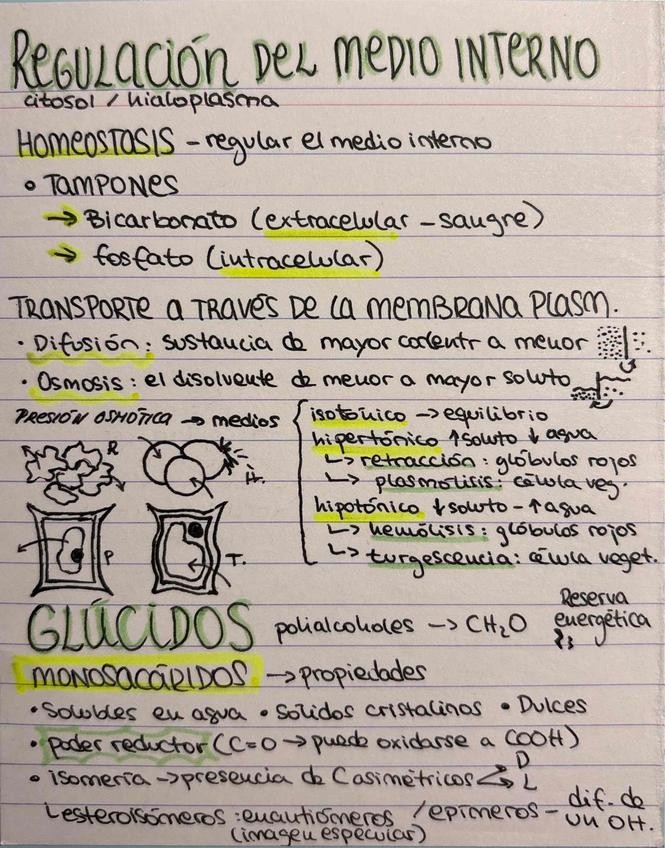 REGULACIÓN DEL MEDIO INTERNO
citosol / hialoplasma
HOMEOSTASIS - regular el medio interno
• TAMPONES
→ Bicarbonato (extracelular - sangre)
→ fosfato (intracelular)
TRANSPORTE A TRAVÉS DE LA MEMBRANA PLASM.
• Difusión: sustancia de mayor concentr a menor
• Osmosis: el disolvente de menor a mayor soluto
PRESIÓN OSMÓTICA → medios
isotónico → equilibrio
hipertónico ↑soluto ↓ agua
↳ retracción: glóbulos rojos
↳ plasmolisis: célula veg.
hipotónico ↓soluto - ↑agua
↳ hemólisis: glóbulos rojos
↳ turgescencia: célula veget.
R
H.
P
T.
GLÚCIDOS polialcoholes → CH₂O
Reserva
energética
MONOSACÁRIDOS → propiedades
• Solubles en agua • Sólidos cristalinos • Dulces
• poder reductor (C=O → puede oxidarse a COOH)
• isomería → presencia de C asimétricos D L
↳ esteroisómeros: enantiómeros / epímeros - dif. de un OH.
(imagen especular)